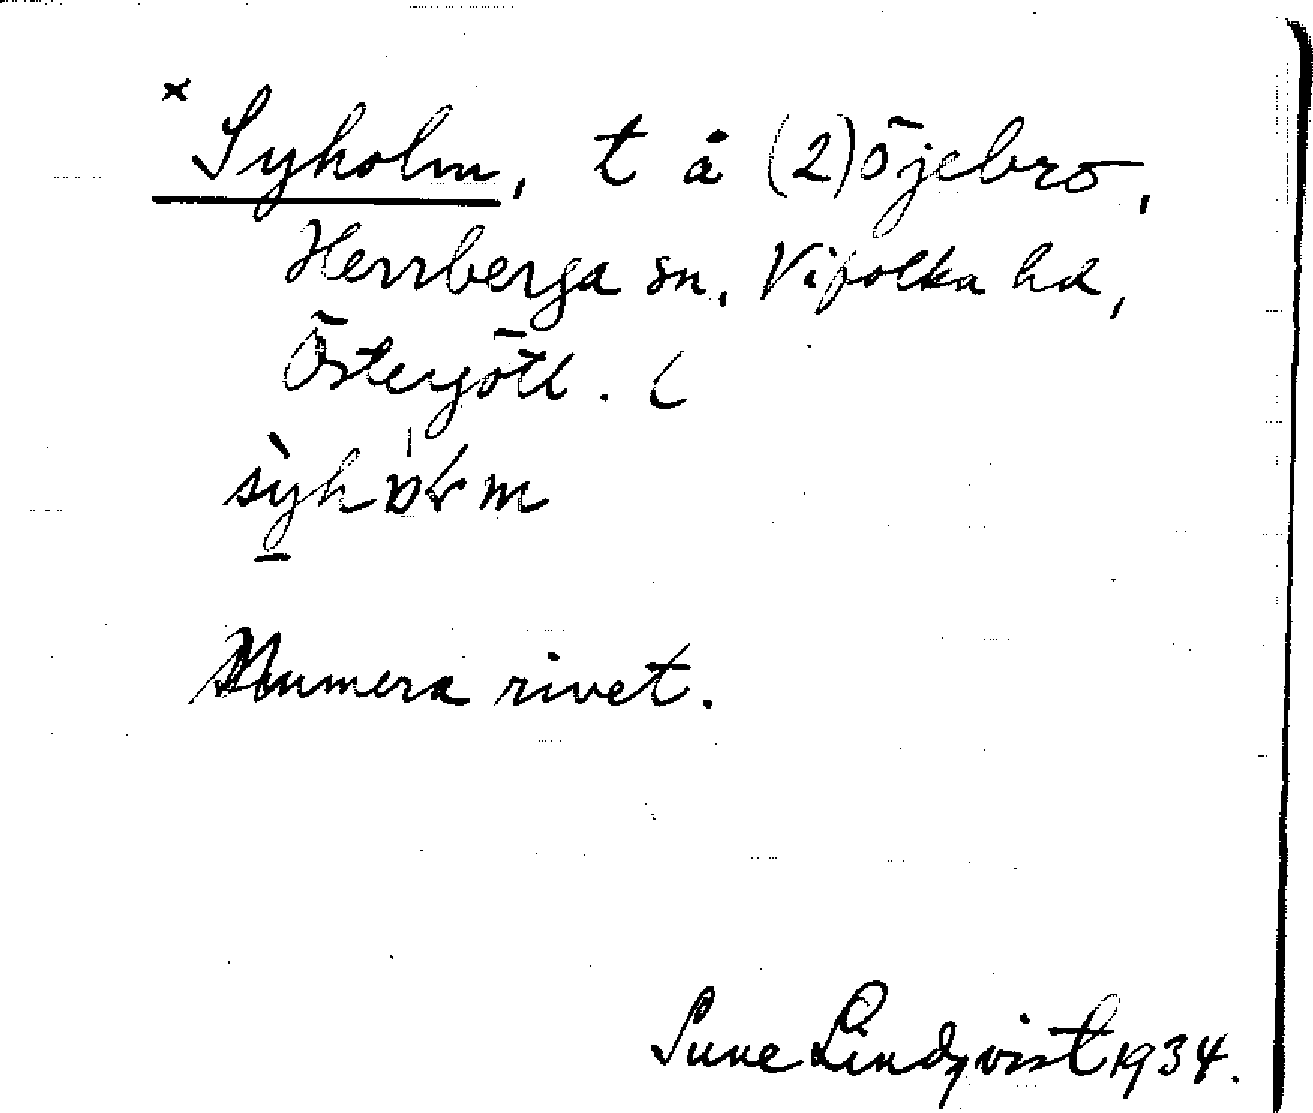 × Syholm, t å (2) Öjebro,
Herrberga sn, Vifolka hd,
Östergötl. (
Numera rivet.
Sune Lindqvist 1934.